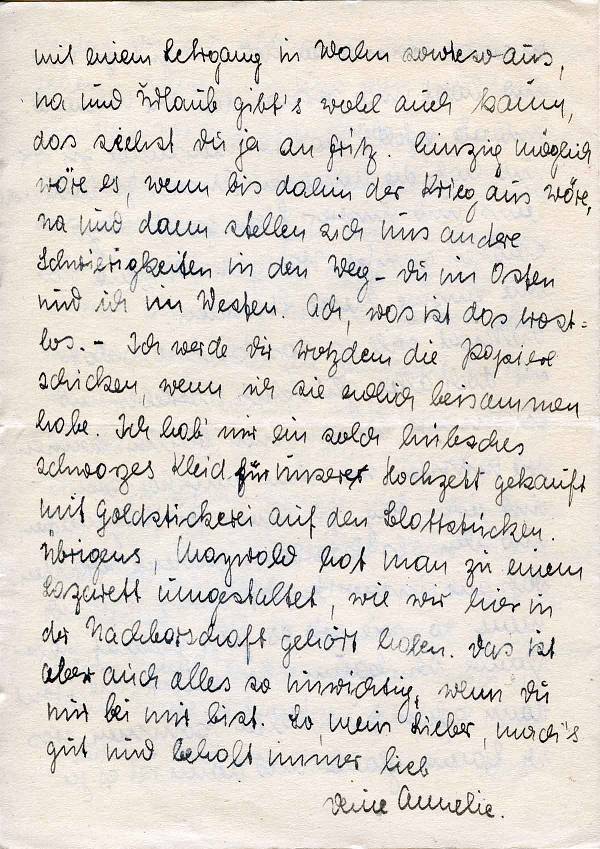 mit einem Lehrgang in Wahn sowieso aus,
na und Urlaub gibt's wohl auch kaum,
das siehst du ja an Fritz. Einzig möglich
wäre es, wenn bis dahin der Krieg aus wäre,
na und dann stellen sich uns andere
Schwierigkeiten in den Weg - du im Osten
und ich im Westen. Ach, was ist das trost=
los. - Ich werde dir trotzdem die Papiere
schicken, wenn ich sie endlich beisammen
habe. Ich hab' mir ein solch hübsches
schwarzes Kleid für unsere Hochzeit gekauft
mit Goldstickerei auf den
Übrigens, Maywald hat man zu einem
Lazarett umgestaltet, wie wir hier in
der Nachbarschaft gehört haben. Das ist
aber auch alles so unwichtig, wenn du
nur bei mir bist. So, mein Lieber, mach's
gut und behalt immer lieb
deine Annelie.